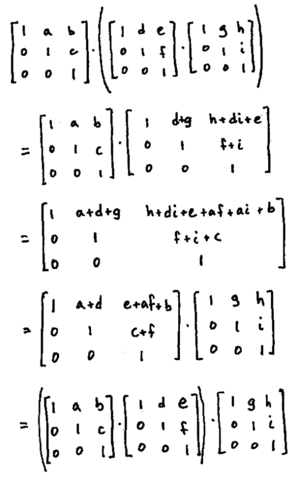 [1 a b; 0 1 c; 0 0 1] · ([1 d e; 0 1 f; 0 0 1] · [1 g h; 0 1 i; 0 0 1])
= [1 a b; 0 1 c; 0 0 1] · [1 d+g h+di+e; 0 1 f+i; 0 0 1]
= [1 a+d+g h+di+e+af+ai+b; 0 1 f+i+c; 0 0 1]
= [1 a+d e+af+b; 0 1 c+f; 0 0 1] · [1 g h; 0 1 i; 0 0 1]
= ([1 a b; 0 1 c; 0 0 1] · [1 d e; 0 1 f; 0 0 1]) · [1 g h; 0 1 i; 0 0 1]